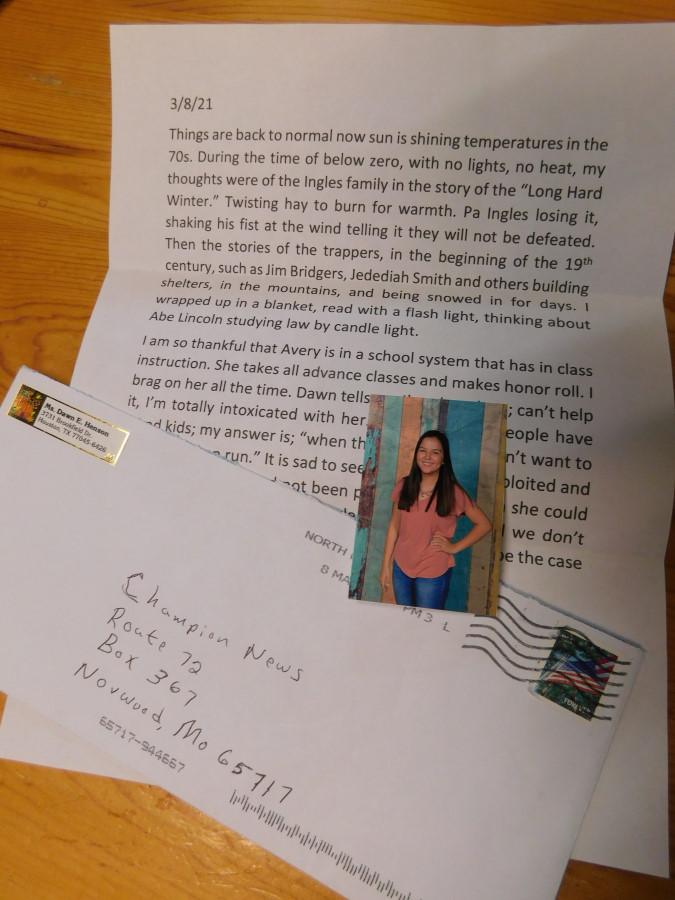 3/8/21
Things are back to normal now sun is shining temperatures in the
70s. During the time of below zero, with no lights, no heat, my
thoughts were of the Ingles family in the story of the “Long Hard
Winter.” Twisting hay to burn for warmth. Pa Ingles losing it,
shaking his fist at the wind telling it they will not be defeated.
Then the stories of the trappers, in the beginning of the 19th
century, such as Jim Bridgers, Jedediah Smith and others building
shelters, in the mountains, and being snowed in for days. I
wrapped up in a blanket, read with a flash light, thinking about
Abe Lincoln studying law by candle light.
I am so thankful that Avery is in a school system that has in class
instruction. She takes all advance classes and makes honor roll. I
brag on her all the time. Dawn tells ; can’t help
it, I’m totally intoxicated with her eople have
kids; my answer is; “when th n’t want to
run.” It is sad to see ploited and
not been p she could
we don’t
be the case
Ms. Dawn E. Henson
3731 Brookfield Dr.
Houston, TX 77045-6426
NORTH
8 MA PM 3 L
FOREVER
Champion News
Route 72
Box 367
Norwood, Mo 65717
65717-944667